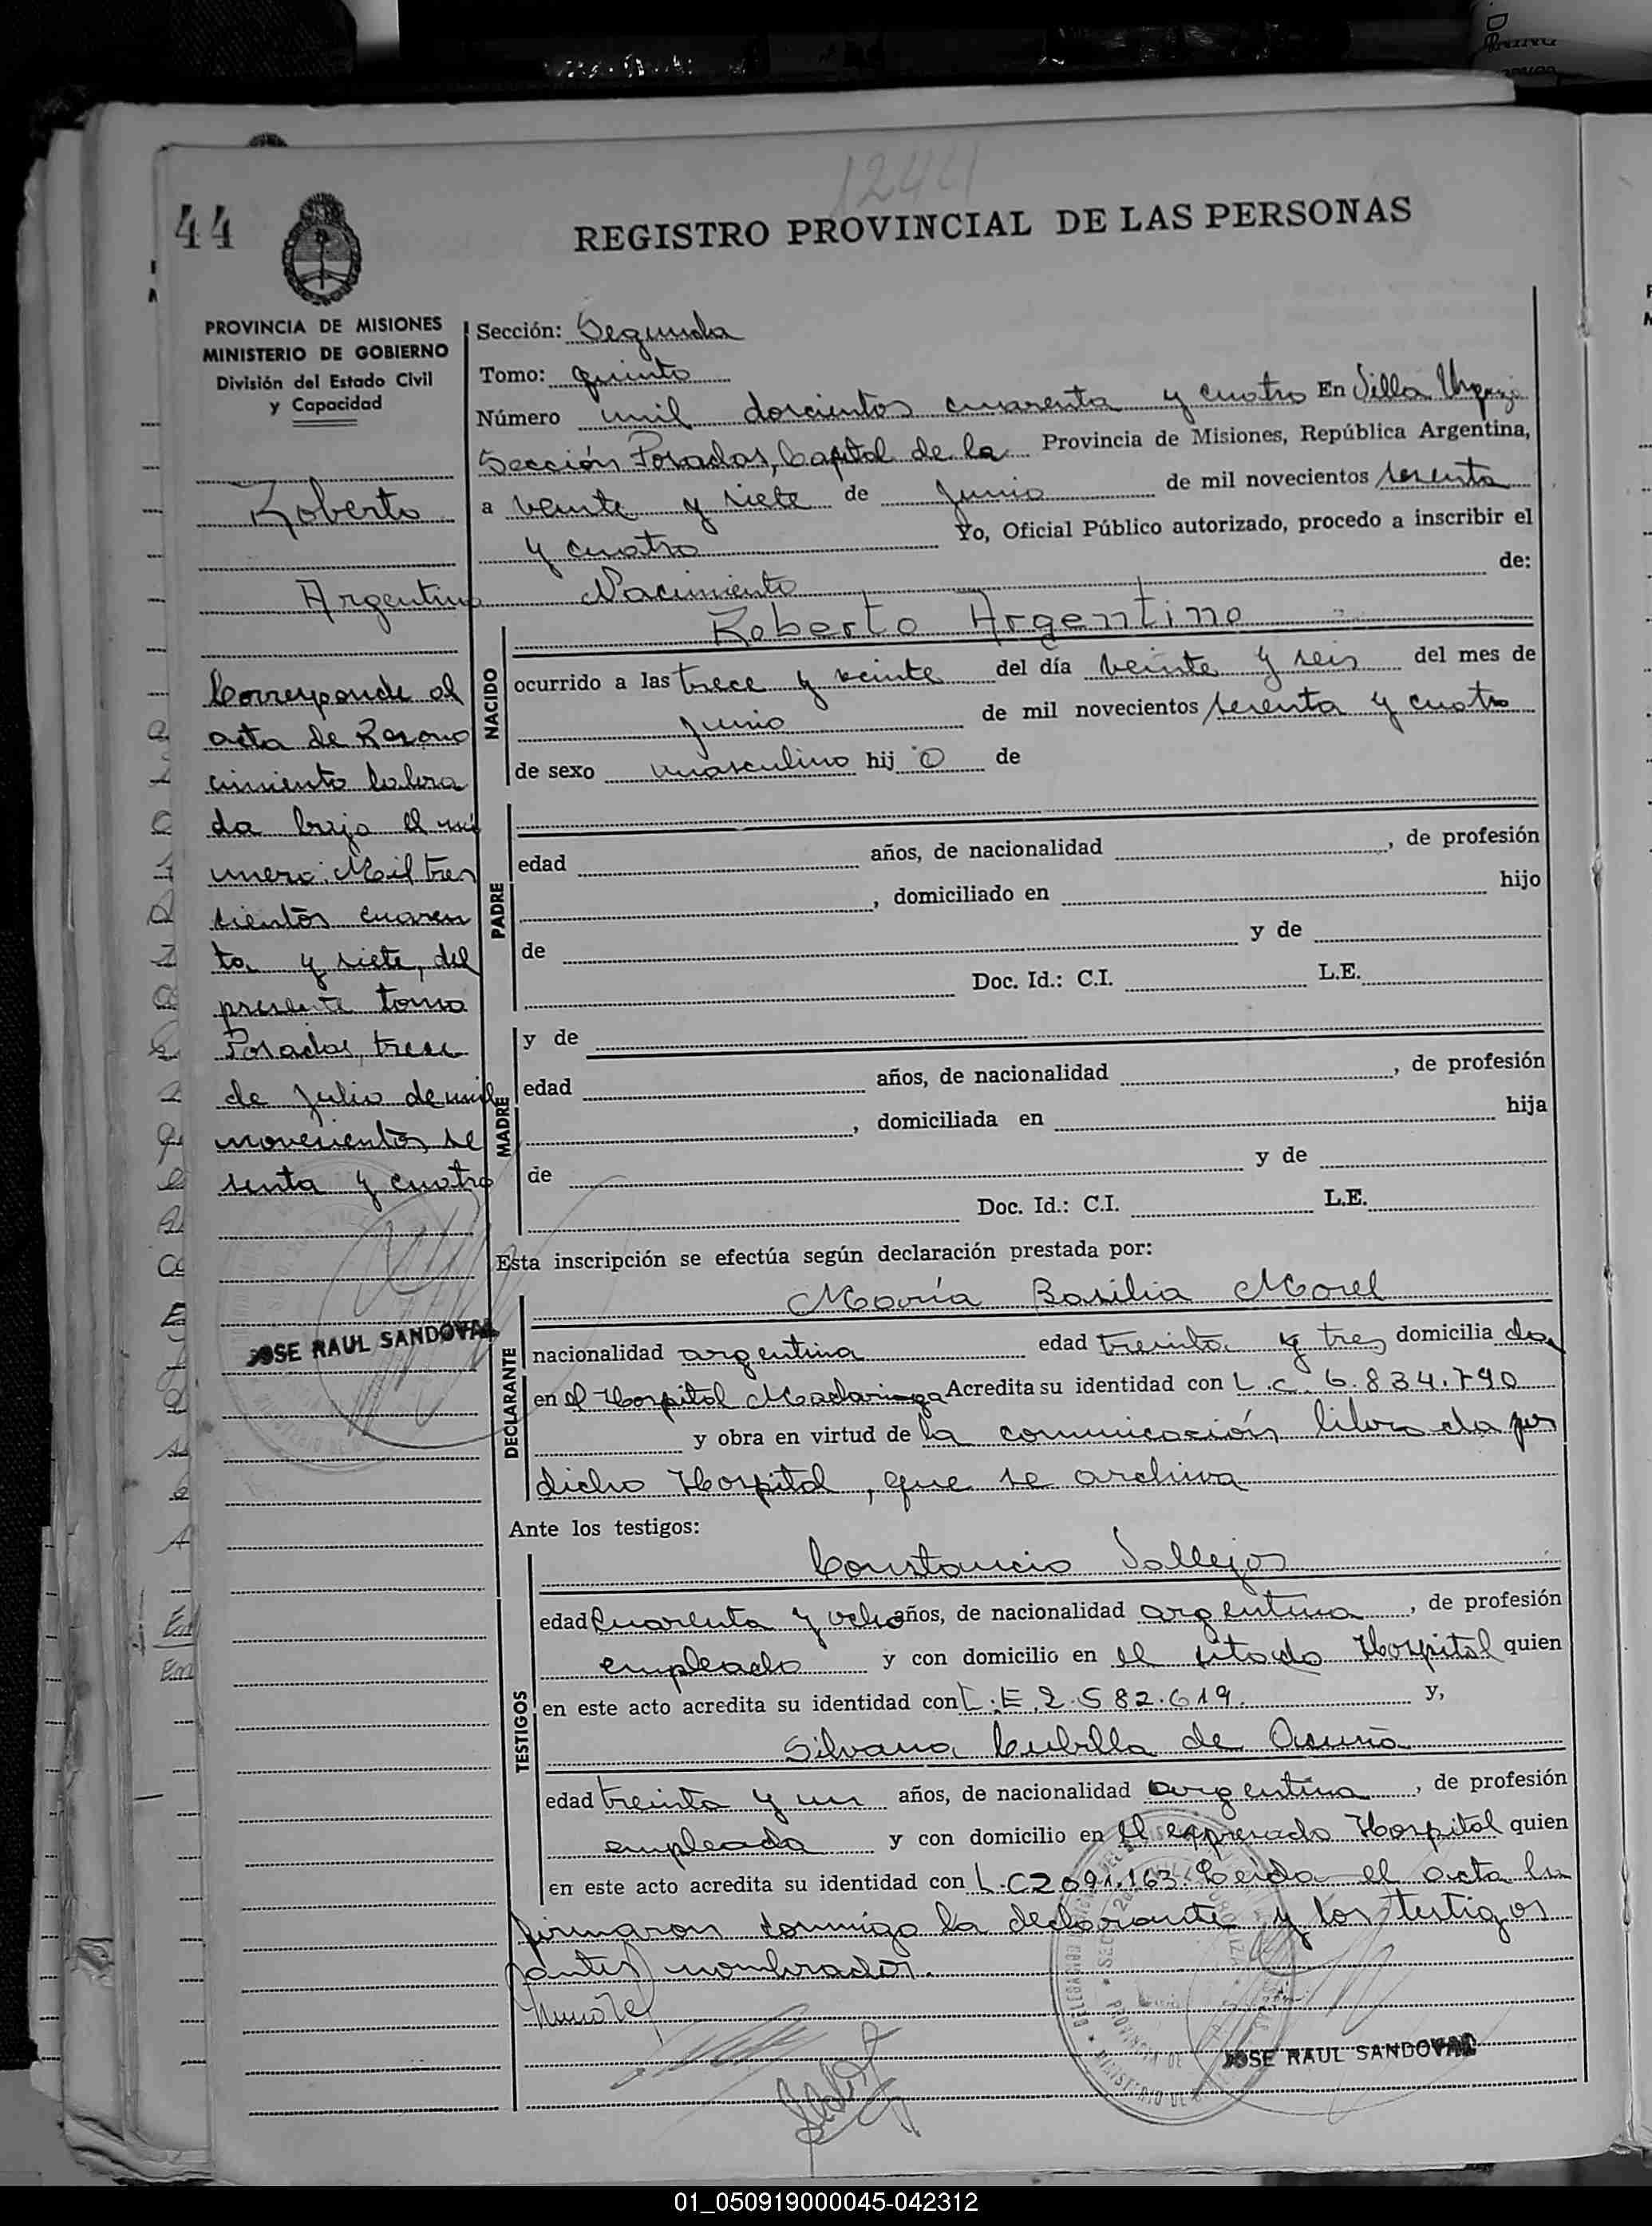 1244
44
REGISTRO PROVINCIAL DE LAS PERSONAS
PROVINCIA DE MISIONES
MINISTERIO DE GOBIERNO
División del Estado Civil
y Capacidad
Roberto
Argentino
Corresponde al
acta de Recono
cimiento labra
da bajo el nú
mero Mil tres
cientos cuaren
ta y siete, del
presente tomo
Posadas, trece
de Julio de mil
novecientos se
senta y cuatro
JOSE RAUL SANDOVAL
Sección: Segunda
Tomo: quinto
Número mil doscientos cuarenta y cuatro En Villa Urquiza
Sección Posadas, Capital de la Provincia de Misiones, República Argentina,
a veinte y siete de Junio de mil novecientos sesenta
y cuatro Yo, Oficial Público autorizado, procedo a inscribir el
Nacimiento de:
NACIDO
Roberto Argentino
ocurrido a las trece y veinte del día veinte y seis del mes de
Junio de mil novecientos sesenta y cuatro
de sexo masculino hij o de
PADRE
edad años, de nacionalidad , de profesión
, domiciliado en hijo
de y de
Doc. Id.: C.I. L.E.
MADRE
y de
edad años, de nacionalidad , de profesión
, domiciliada en hija
de y de
Doc. Id.: C.I. L.E.
Esta inscripción se efectúa según declaración prestada por:
DECLARANTE
María Basilia Morel
nacionalidad argentina edad treinta y tres domicilia da
en el Hospital Madariaga Acredita su identidad con L.C. 6.834.790
y obra en virtud de la comunicación librada por
dicho Hospital, que se archiva
Ante los testigos:
TESTIGOS
Constancio Vallejos
edad Cuarenta y ocho años, de nacionalidad argentina, de profesión
empleado y con domicilio en el citado Hospital quien
en este acto acredita su identidad con L.E. 2.582.619. y,
Silvana Cubilla de Acuña
edad treinta y un años, de nacionalidad argentina, de profesión
empleada y con domicilio en el expresado Hospital quien
en este acto acredita su identidad con L.C 2.091.163. Leida el acta la
firmaron conmigo la declarante y los testigos
antes nombrados.
JOSE RAUL SANDOVAL
01_050919000045-042312